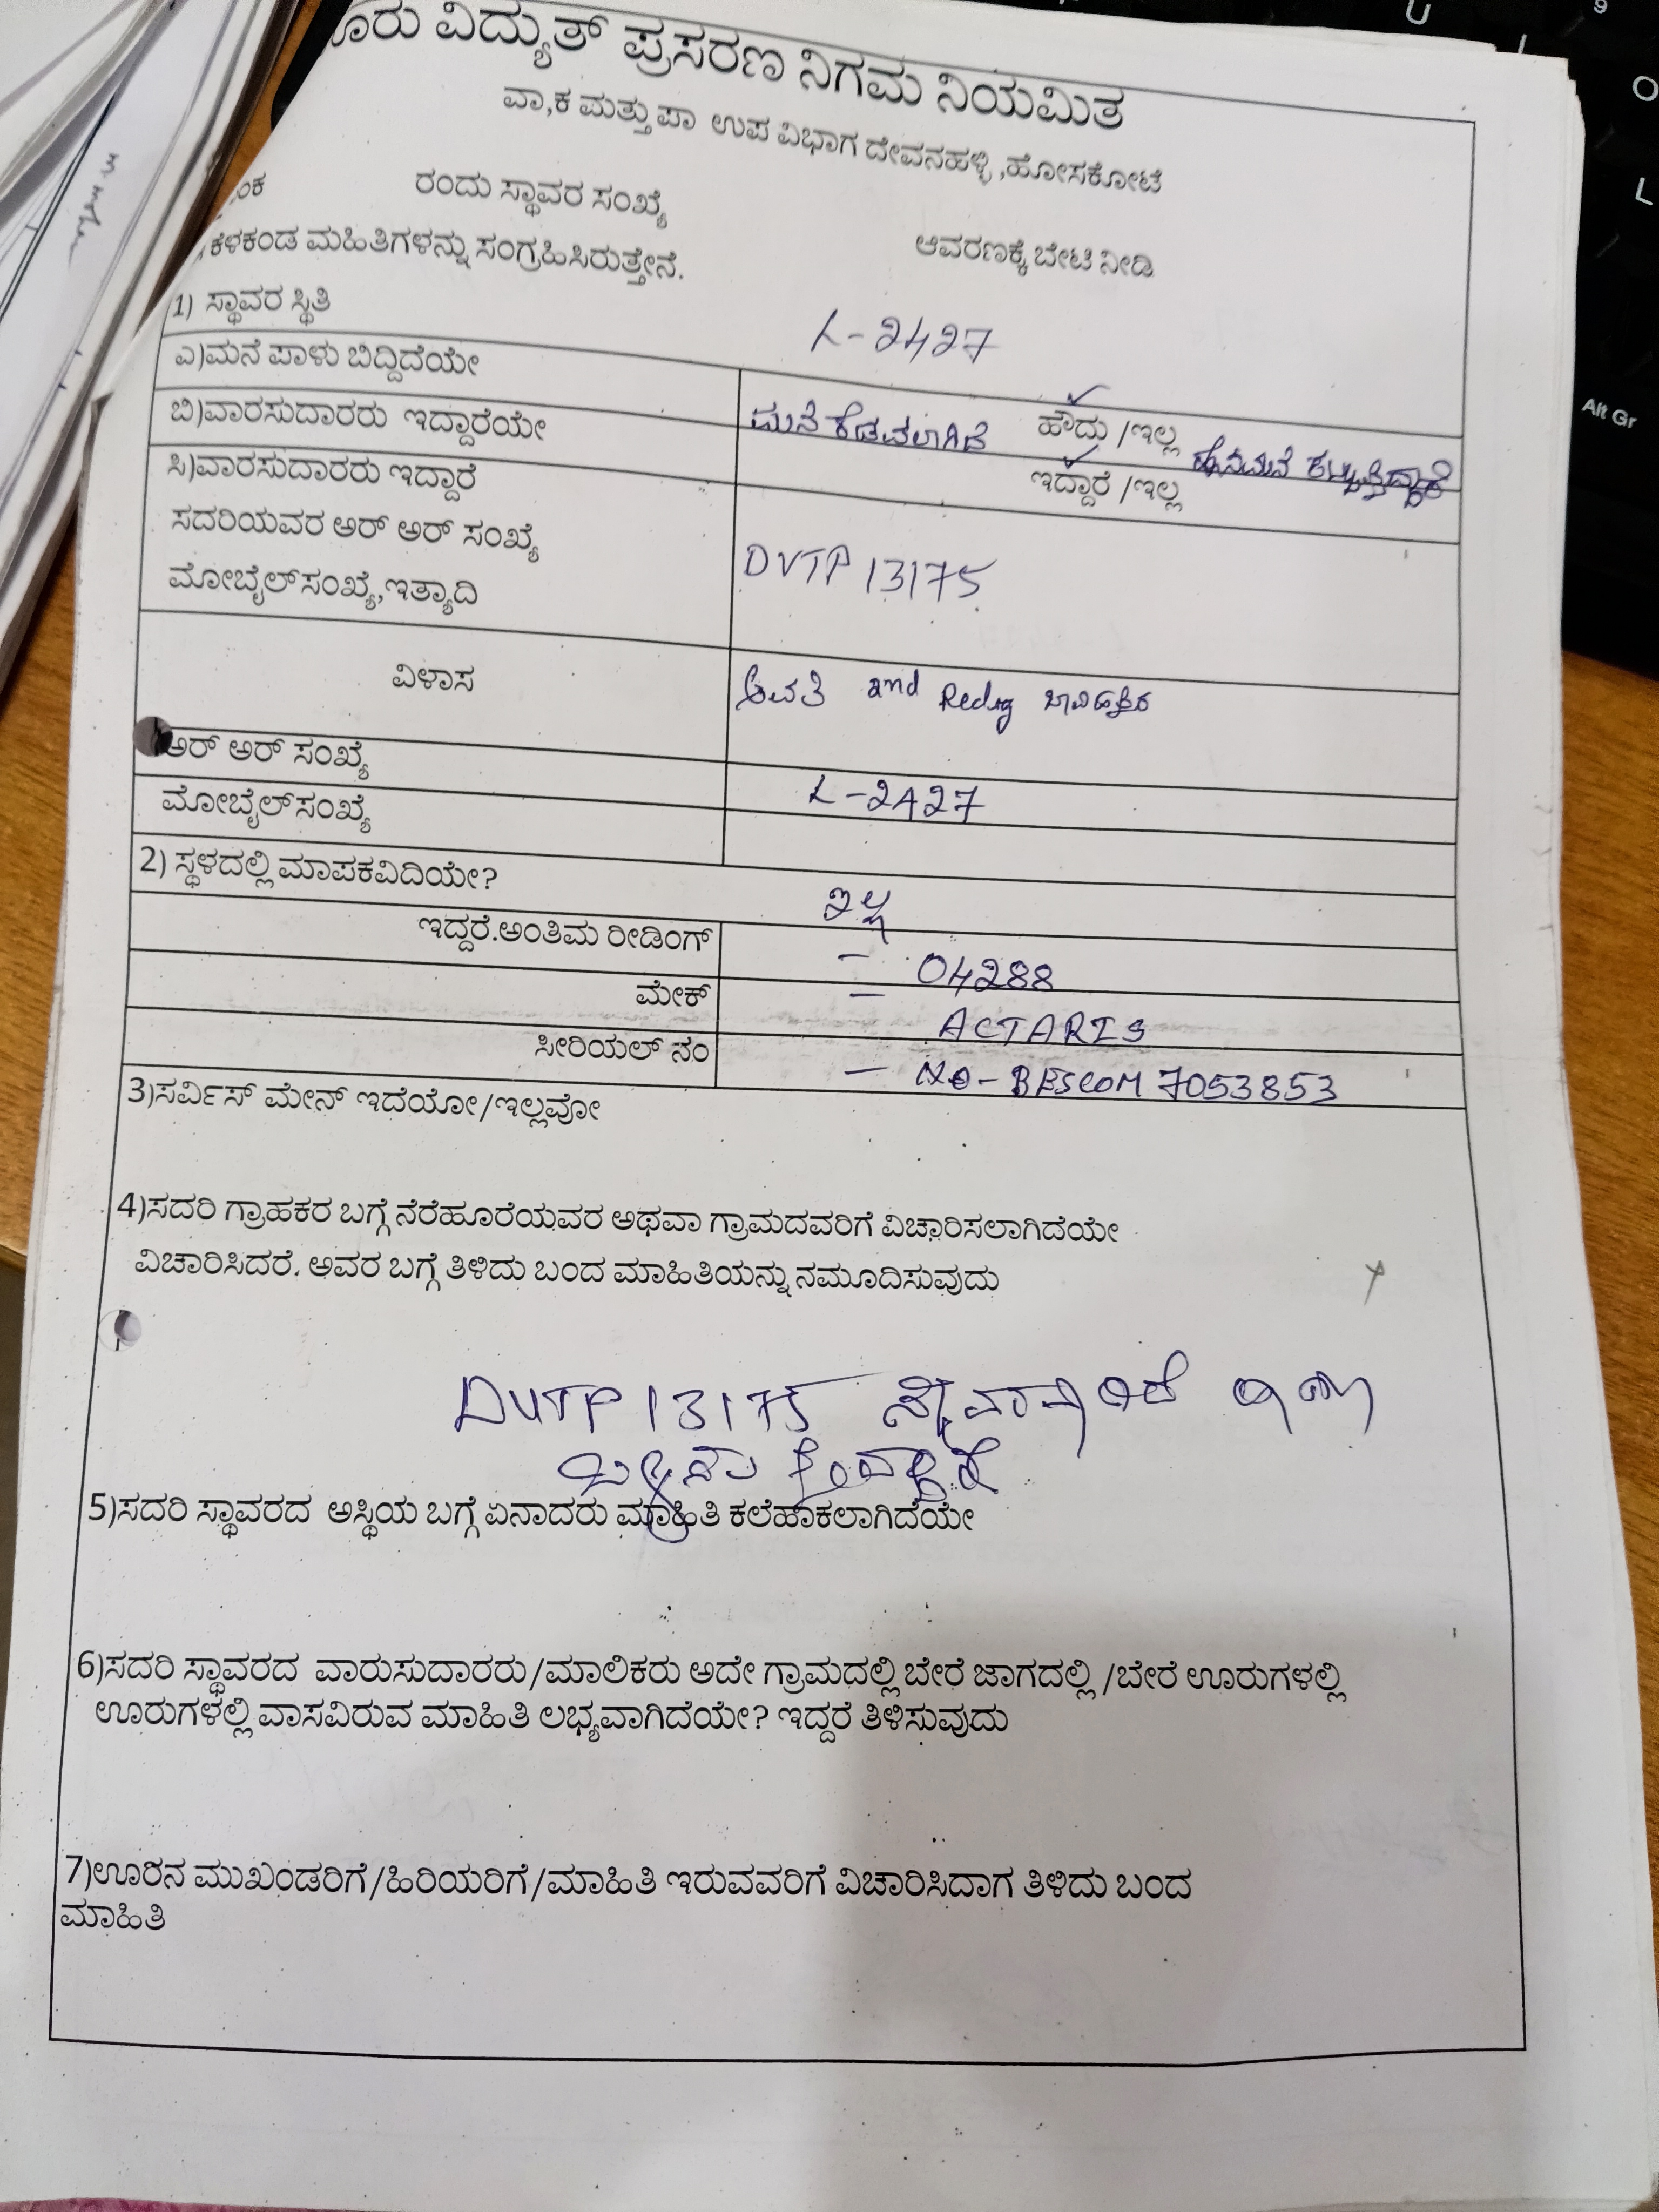 ವಿದ್ಯುತ್ ಪ್ರಸರಣ ನಿಗಮ ನಿಯಮಿತ
ವಾ,ಕ ಮತ್ತು ಪಾ ಉಪ ವಿಭಾಗ ದೇವನಹಳ್ಳಿ ,ಹೋಸಕೋಟೆ
ರಂದು ಸ್ಥಾವರ ಸಂಖ್ಯೆ
ಆವರಣಕ್ಕೆ ಬೇಟಿ ನೀಡಿ
ಕೆಳಕಂಡ ಮಹಿತಿಗಳನ್ನು ಸಂಗ್ರಹಿಸಿರುತ್ತೇನೆ.
1) ಸ್ಥಾವರ ಸ್ಥಿತಿ
L-2427
ಎ)ಮನೆ ಪಾಳು ಬಿದ್ದಿದೆಯೇ
ಮನೆ ಕೆಡವಲಾಗಿದೆ ಹೌದು /ಇಲ್ಲ
ಬಿ)ವಾರಸುದಾರರು ಇದ್ದಾರೆಯೇ
ಇದ್ದಾರೆ /ಇಲ್ಲ
ಸಿ)ವಾರಸುದಾರರು ಇದ್ದಾರೆ
ಸದರಿಯವರ ಅರ್ ಅರ್ ಸಂಖ್ಯೆ
ಮೋಬೈಲ್ ಸಂಖ್ಯೆ,ಇತ್ಯಾದಿ
DVTP 13175
ವಿಳಾಸ
and
ಅರ್ ಅರ್ ಸಂಖ್ಯೆ
L-2427
ಮೋಬೈಲ್ ಸಂಖ್ಯೆ
2) ಸ್ಥಳದಲ್ಲಿ ಮಾಪಕವಿದಿಯೇ?
ಇಲ್ಲ
ಇದ್ದರೆ.ಅಂತಿಮ ರೀಡಿಂಗ್
- 04288
ಮೇಕ್
- ACTARIS
ಸೀರಿಯಲ್ ನಂ
- NO-BESCOM 7053853
3)ಸರ್ವಿಸ್ ಮೇನ್ ಇದೆಯೋ/ಇಲ್ಲವೋ
4)ಸದರಿ ಗ್ರಾಹಕರ ಬಗ್ಗೆ ನೆರೆಹೂರೆಯವರ ಅಥವಾ ಗ್ರಾಮದವರಿಗೆ ವಿಚಾರಿಸಲಾಗಿದೆಯೇ
ವಿಚಾರಿಸಿದರೆ. ಅವರ ಬಗ್ಗೆ ತಿಳಿದು ಬಂದ ಮಾಹಿತಿಯನ್ನು ನಮೂದಿಸುವುದು
DVTP 13175
5)ಸದರಿ ಸ್ಥಾವರದ ಅಸ್ಥಿಯ ಬಗ್ಗೆ ಏನಾದರು ಮಾಹಿತಿ ಕಲೆಹಾಕಲಾಗಿದೆಯೇ
6)ಸದರಿ ಸ್ಥಾವರದ ವಾರುಸುದಾರರು/ಮಾಲಿಕರು ಅದೇ ಗ್ರಾಮದಲ್ಲಿ ಬೇರೆ ಜಾಗದಲ್ಲಿ /ಬೇರೆ ಊರುಗಳಲ್ಲಿ
ಊರುಗಳಲ್ಲಿ ವಾಸವಿರುವ ಮಾಹಿತಿ ಲಭ್ಯವಾಗಿದೆಯೇ? ಇದ್ದರೆ ತಿಳಿಸುವುದು
7)ಊರಿನ ಮುಖಂಡರಿಗೆ/ಹಿರಿಯರಿಗೆ/ಮಾಹಿತಿ ಇರುವವರಿಗೆ ವಿಚಾರಿಸಿದಾಗ ತಿಳಿದು ಬಂದ
ಮಾಹಿತಿ
Alt Gr